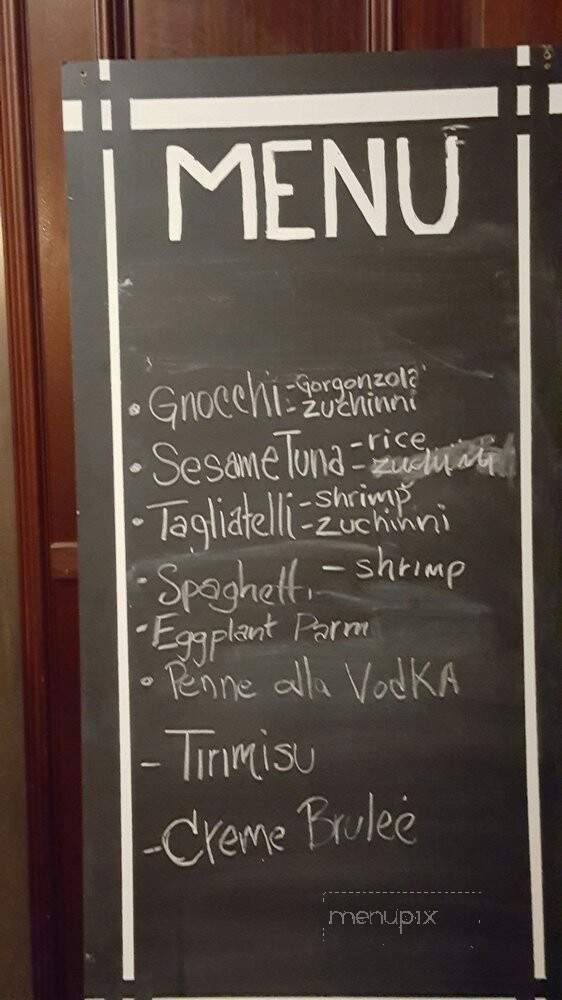 MENU
• Gnocchi - Gorgonzola
- zuchinni
• Sesame Tuna - rice
• Tagliatelli - shrimp
- zuchinni
- Spaghetti - shrimp
- Eggplant Parm
• Penne alla VodKA
- Tirimisu
- Creme Bruleé
menupix